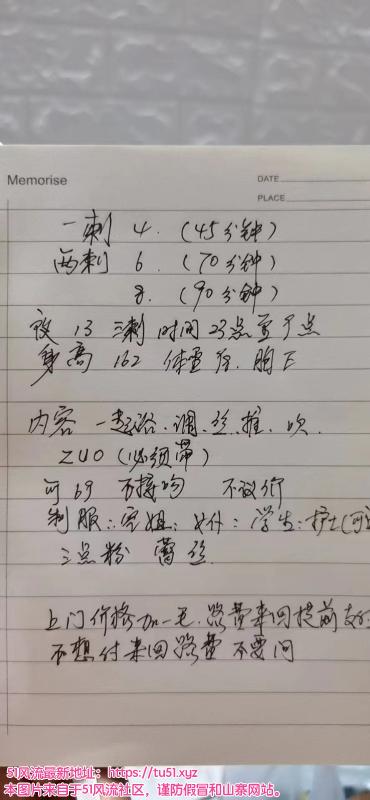 Memorise
DATE
PLACE
一刺 4. (45分钟)
两刺 6. (70分钟)
8. (90分钟)
夜 13 三刺 时间 23点至7点
身高 162 体重 胸E
内容 一起浴.调.丝.推.吹.
ZUO (必须带)
可69 不接吻 不议价
制服:空姐:女仆:学生:护士(可
三点粉 蕾丝.
上门价格加一毛.路费来回提前支付
不想付来回路费 不要问
51风流最新地址:https://tu51.xyz
本图片来自于51风流社区,谨防假冒和山寨网站。